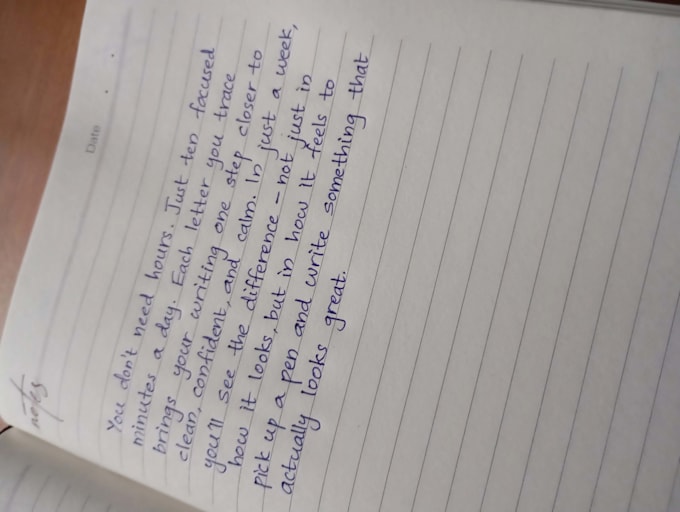 notes
Date
You don't need hours. Just ten focused
minutes a day. Each letter you trace
brings your writing one step closer to
clean, confident, and calm. In just a week,
you'll see the difference - not just in
how it looks, but in how it feels to
pick up a pen and write something that
actually looks great.